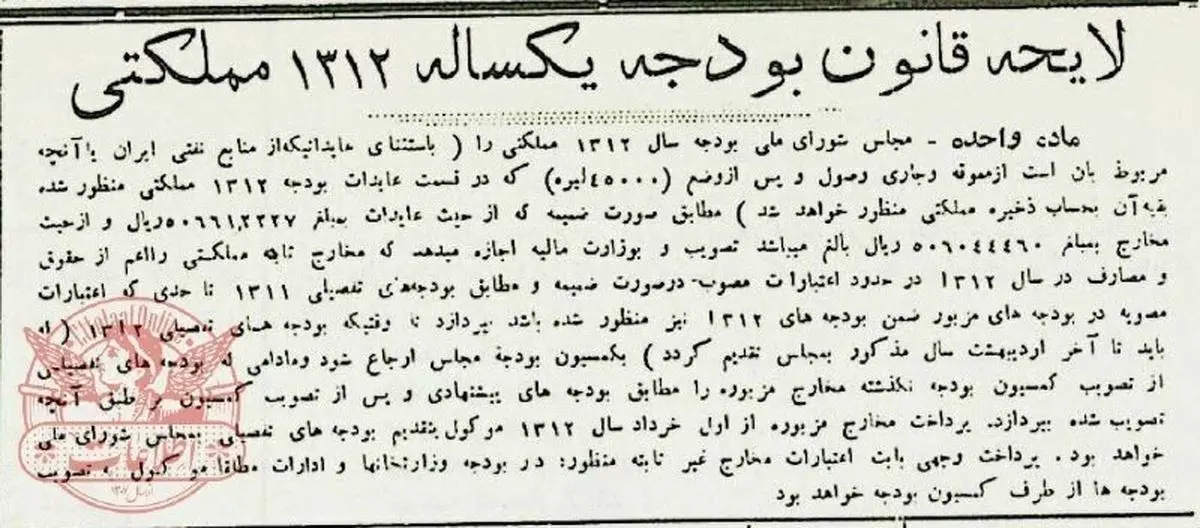 لایحه قانون بودجه یکساله ۱۳۱۲ مملکتی
ماده واحده - مجلس شورای ملی بودجه سال ۱۳۱۲ مملکتی را ( باستثنای عایداتیکه از منابع نفتی ایران یا آنچه
مربوط بان است ازمعوقه وجاری وصول و پس ازوضع (۴۵۰۰۰لیره) که در قسمت عایدات بودجه ۱۳۱۲ مملکتی منظور شده
بقیه آن بحساب ذخیره مملکتی منظور خواهد شد ) مطابق صورت ضمیمه که از حیث عایدات بمبلغ ریال و ازحیث
مخارج بمبلغ ۵۰۶۰۴۴۴۶۰ ریال بالغ میباشد تصویب و بوزارت مالیه اجازه میدهد که مخارج ثابته مملکتی رااعم از حقوق
و مصارف در سال ۱۳۱۲ در حدود اعتبارات مصوب درصورت ضمیمه و مطابق بودجه‌های تفصیلی ۱۳۱۱ تا حدی که اعتبارات
مصوبه در بودجه های مزبور ضمن بودجه های ۱۳۱۲ نیز منظور شده باشد بپردازد تا وقتیکه بودجه های تفصیلی ۱۳۱۲ ( که
باید تا آخر اردیبهشت سال مذکور بمجلس تقدیم گردد ) بکمسیون بودجهٔ مجلس ارجاع شود ومادامی که بودجه های تفصیلی
از تصویب کمسیون بودجه نگذشته مخارج مزبوره را مطابق بودجه های پیشنهادی و پس از تصویب کمسیون بر طبق آنچه
تصویب شده بپردازد. پرداخت مخارج مزبوره از اول خرداد سال ۱۳۱۲ موکول بتقدیم بودجه های تفصیلی بمجلس شورای ملی
خواهد بود . پرداخت وجهی بابت اعتبارات مخارج غیر ثابته منظور: در بودجه وزارتخانها و ادارات مطلقا موکول به تصویب
بودجه ها از طرف کمسیون بودجه خواهد بود
Ettelaat Online
اطلاعات